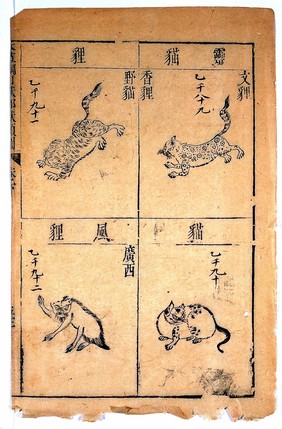 靈貓
文貍
乙千八十九
香貍
貓
乙千九十
貍
野貓
乙千九十一
風貍
廣西
乙千九十二